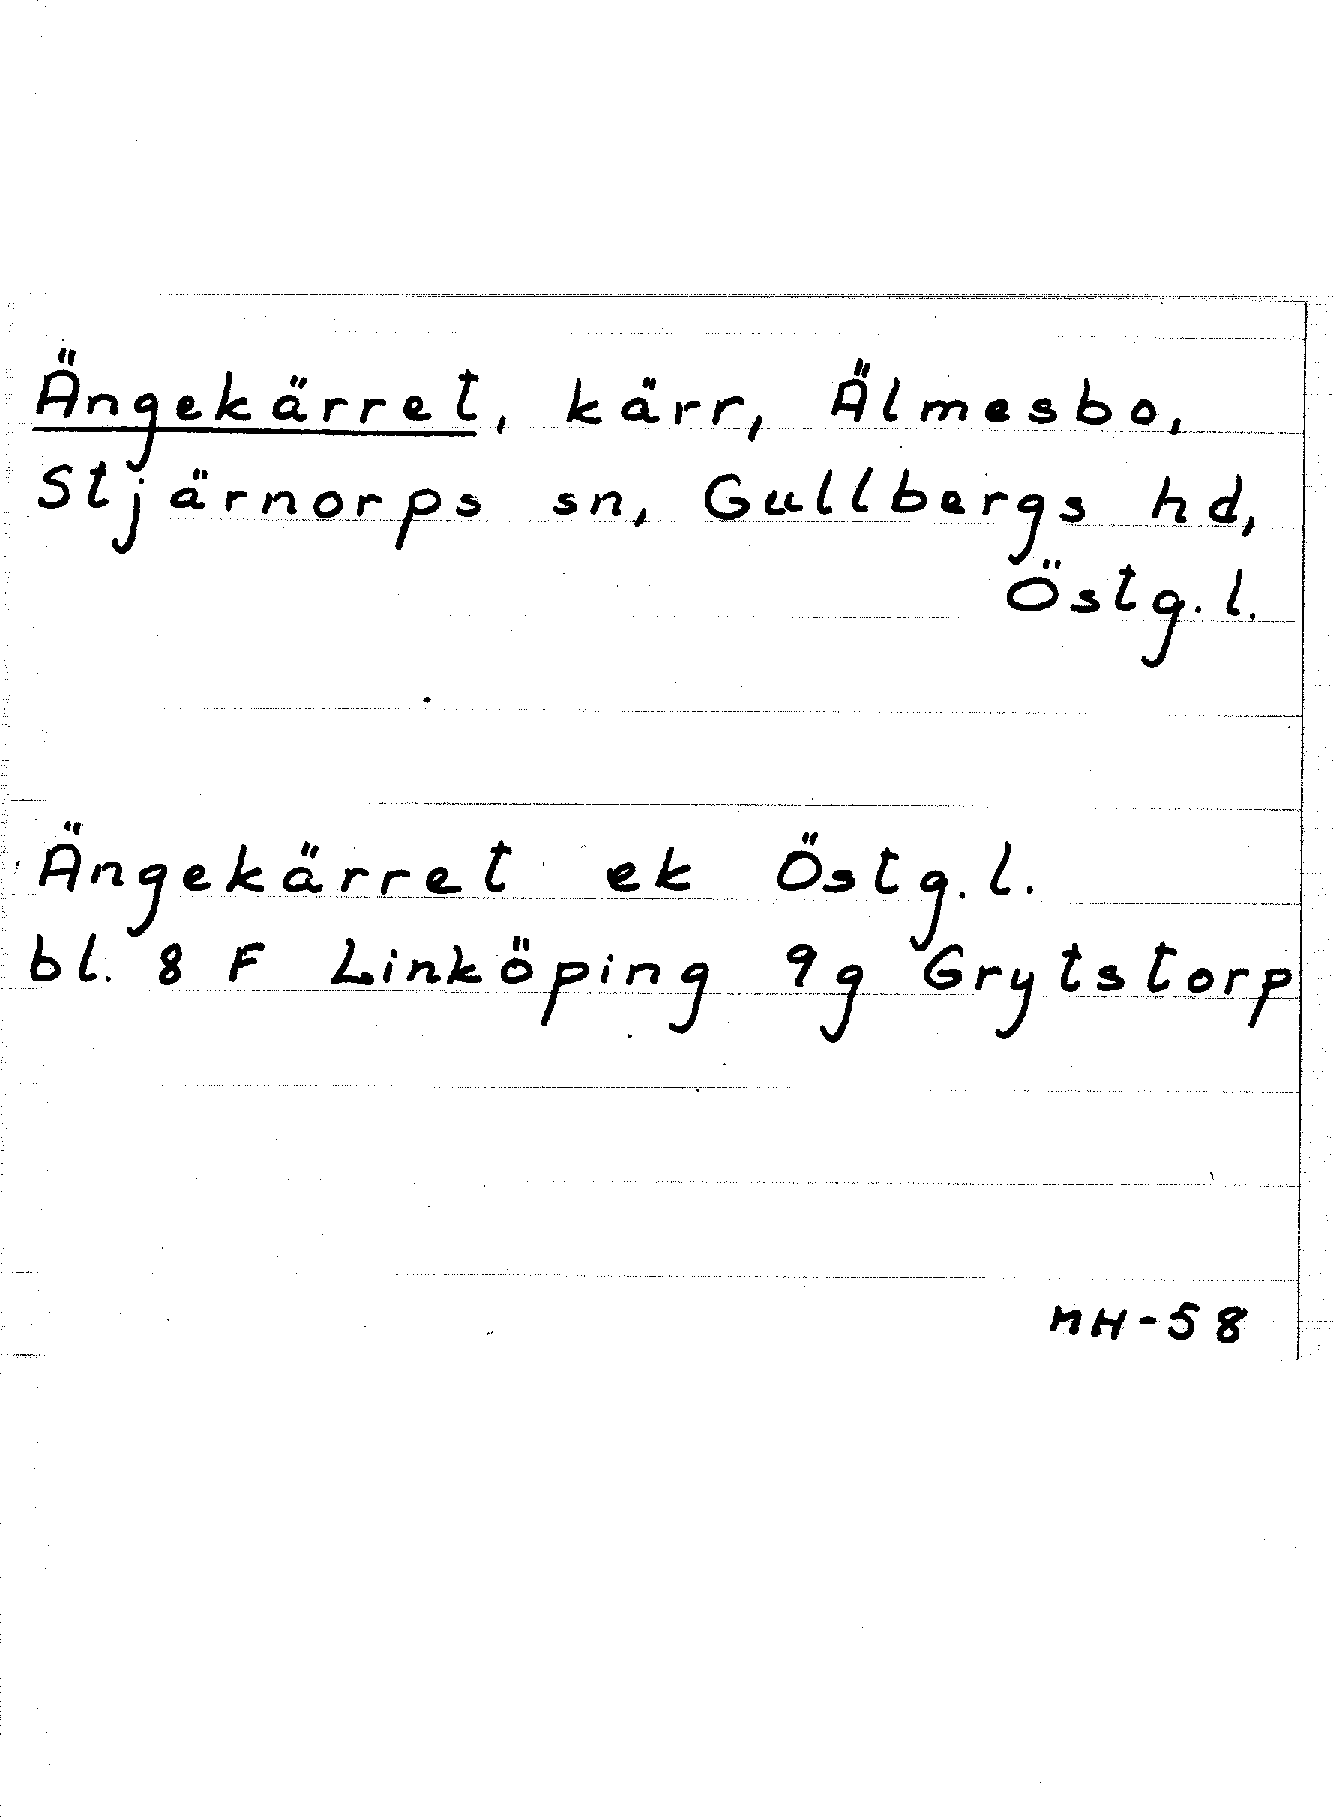 Ängekärret, kärr, Älmesbo,
Stjärnorps sn, Gullbergs hd,
Östg. l.
Ängekärret ek Östg. l.
bl. 8 F Linköping 9g Grytstorp
MH-58